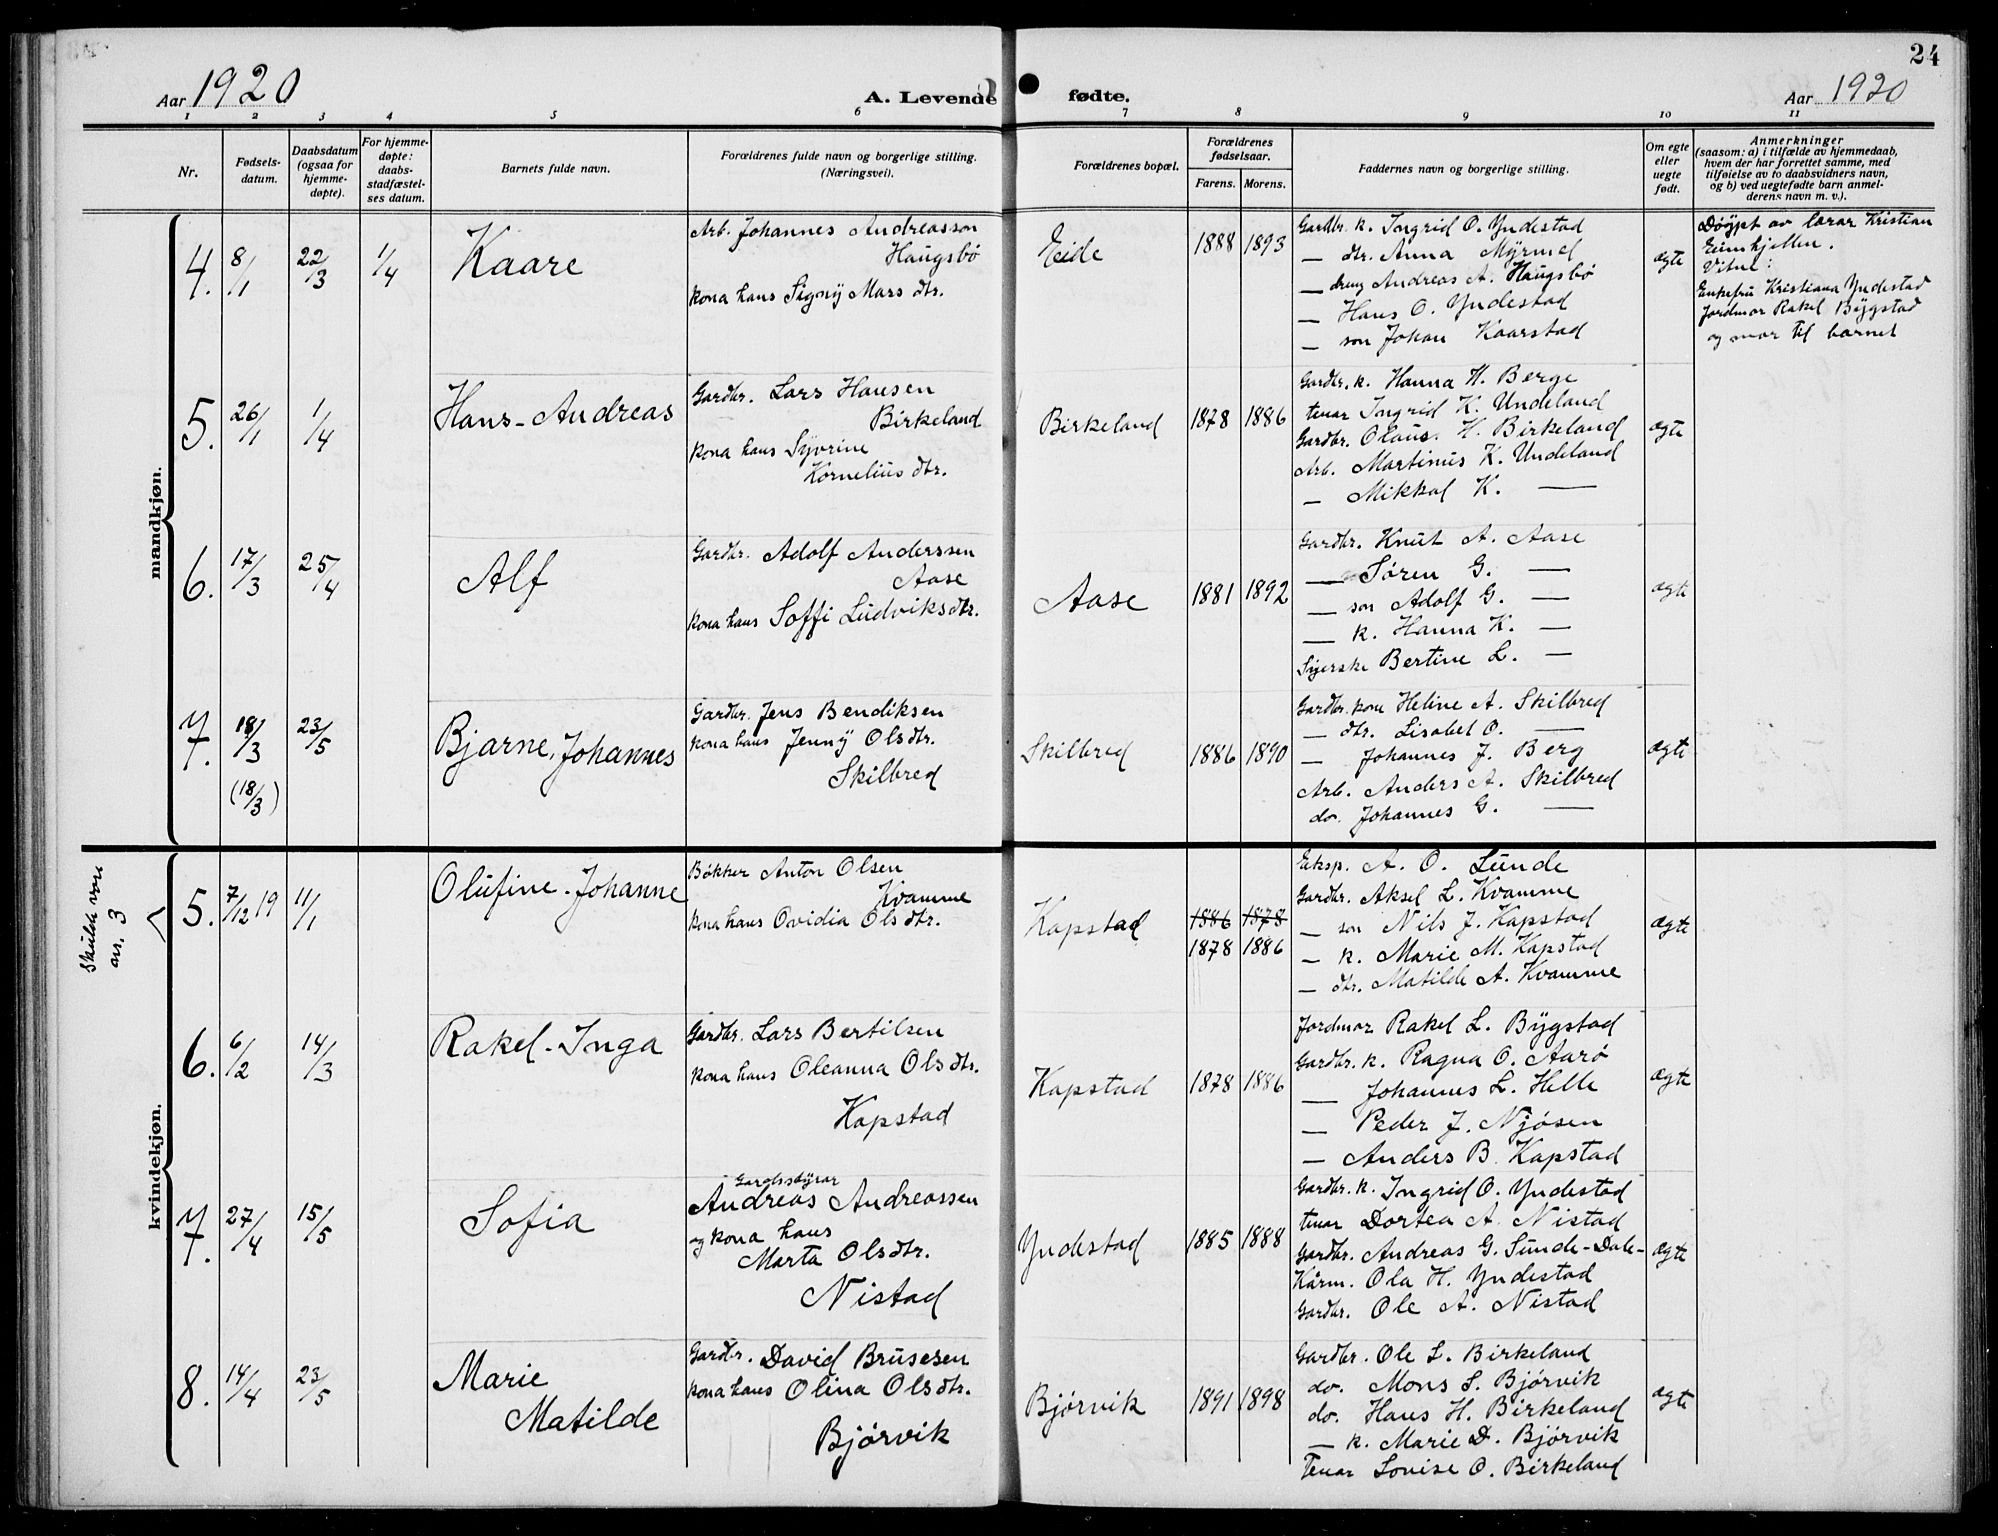 24
Aar 1920 A. Levende fødte. Aar 1920
1 2 3 4 5 6 7 8 9 10 11
Nr.
Fødsels-
datum.
Daabsdatum
(ogsaa for
hjemme-
døpte).
For hjemme-
døpte:
daabs-
stadfæstel-
ses datum.
Barnets fulde navn.
Forældrenes fulde navn og borgerlige stilling.
(Næringsvei).
Forældrenes bopæl.
Forældrenes
fødselsaar.
Farens. Morens.
Faddernes navn og borgerlige stilling.
Om egte
eller
uegte
født.
Anmerkninger
(saasom: a) i tilfælde av hjemmedaab,
hvem der har forrettet samme, med
tilføielse av to daabsvidners navn,
og b) ved uegtefødte barn anmel-
derens navn m. v.).
mandkjøn.
4. 8/1 22/3 1/4 Kaare
Arb. Johannes Andreasson
Haugsbø
kona hans Signy Mars dtr.
Eide 1888 1893
Gardbr. k. Ingrid O. Yndestad
— dtr. Anna Myrmel
— dreng Andreas A. Haugsbø
— Hans O. Yndestad
— son Johan Kaarstad
ægte
Døypt av lærar Kristian
Eimhjellen.
Vitne:
Enkefru Kristiana Yndestad
Jordmor Rakel Bygstad
og mor til barnet
5. 26/1 1/4 Hans-Andreas
Gardbr. Lars Hansen
Birkeland
kona hans Syvrine
Kornelius dtr.
Birkeland 1878 1886
Gardbr. k. Hanna H. Berge
tenar Ingrid K. Undeland
Gardbr. Olaus. H. Birkeland
Arb. Martinus K. Undeland
— Mikkal K. —
ægte
6. 17/3 25/4 Alf
Gardbr. Adolf Anderssen
Aase
kona hans Soffi Ludviksdtr.
Aase 1881 1892
Gardbr. Knut A. Aase
— Søren G. —
— son Adolf G. —
— k. Hanna K. —
Syerske Bertine L. —
ægte
7. 18/3 23/5 Bjarne, Johannes
(18/3)
Gardbr. Jens Bendiksen
kona hans Jenny Olsdtr.
Skilbred
Skilbred 1886 1890
Gardbr. kone Heline A. Skilbred
— dtr. Lisabet O. —
— Johannes J. Berg
Arb. Anders A. Skilbred
do. Johannes G. —
ægte
kvindekjøn.
Skulde vore
nr. 3
5. 7/12 19 11/1 Olufine-Johanne
Bøkker Anton Olsen
Kvamme
kona hans Ovidia Olsdtr.
Kapstad 1886 1878
1878 1886
Eksp. A. O. Sunde
Gardbr. Aksel L. Kvamme
— son Nils J. Kapstad
— k. Marie M. Kapstad
— dtr. Matilde A. Kvamme
ægte
6. 6/2 14/3 Rakel-Inga
Gardbr. Lars Bertilsen
kona hans Oleanna Olsdtr.
Kapstad
Kapstad 1878 1886
Jordmor Rakel L. Bygstad
Gardbr. k. Ragna O. Aarø
— Johannes L. Helle
— Peder J. Njøsen
— Anders B. Kapstad
ægte
7. 27/4 15/5 Sofia
Gardsstyrar
Andreas Andreassen
og kona hans
Marta Olsdtr.
Nistad
Yndestad 1885 1888
Gardbr. k. Ingrid O. Yndestad
tenar Dortea A. Nistad
Gardbr. Andreas G. Sunde-Dale-
Kårm. Ola H. Yndestad
Gardbr. Ole A. Nistad
ægte
8. 14/4 23/5 Marie
Matilde
Gardbr. David Brusesen
kona hans Olina Olsdtr.
Bjørvik
Bjørvik 1891 1898
Gardbr. Ole L. Birkeland
do. Mons S. Bjørvik
do. Hans H. Birkeland
— k. Marie D. Bjørvik
Tenar Lovise O. Birkeland
ægte